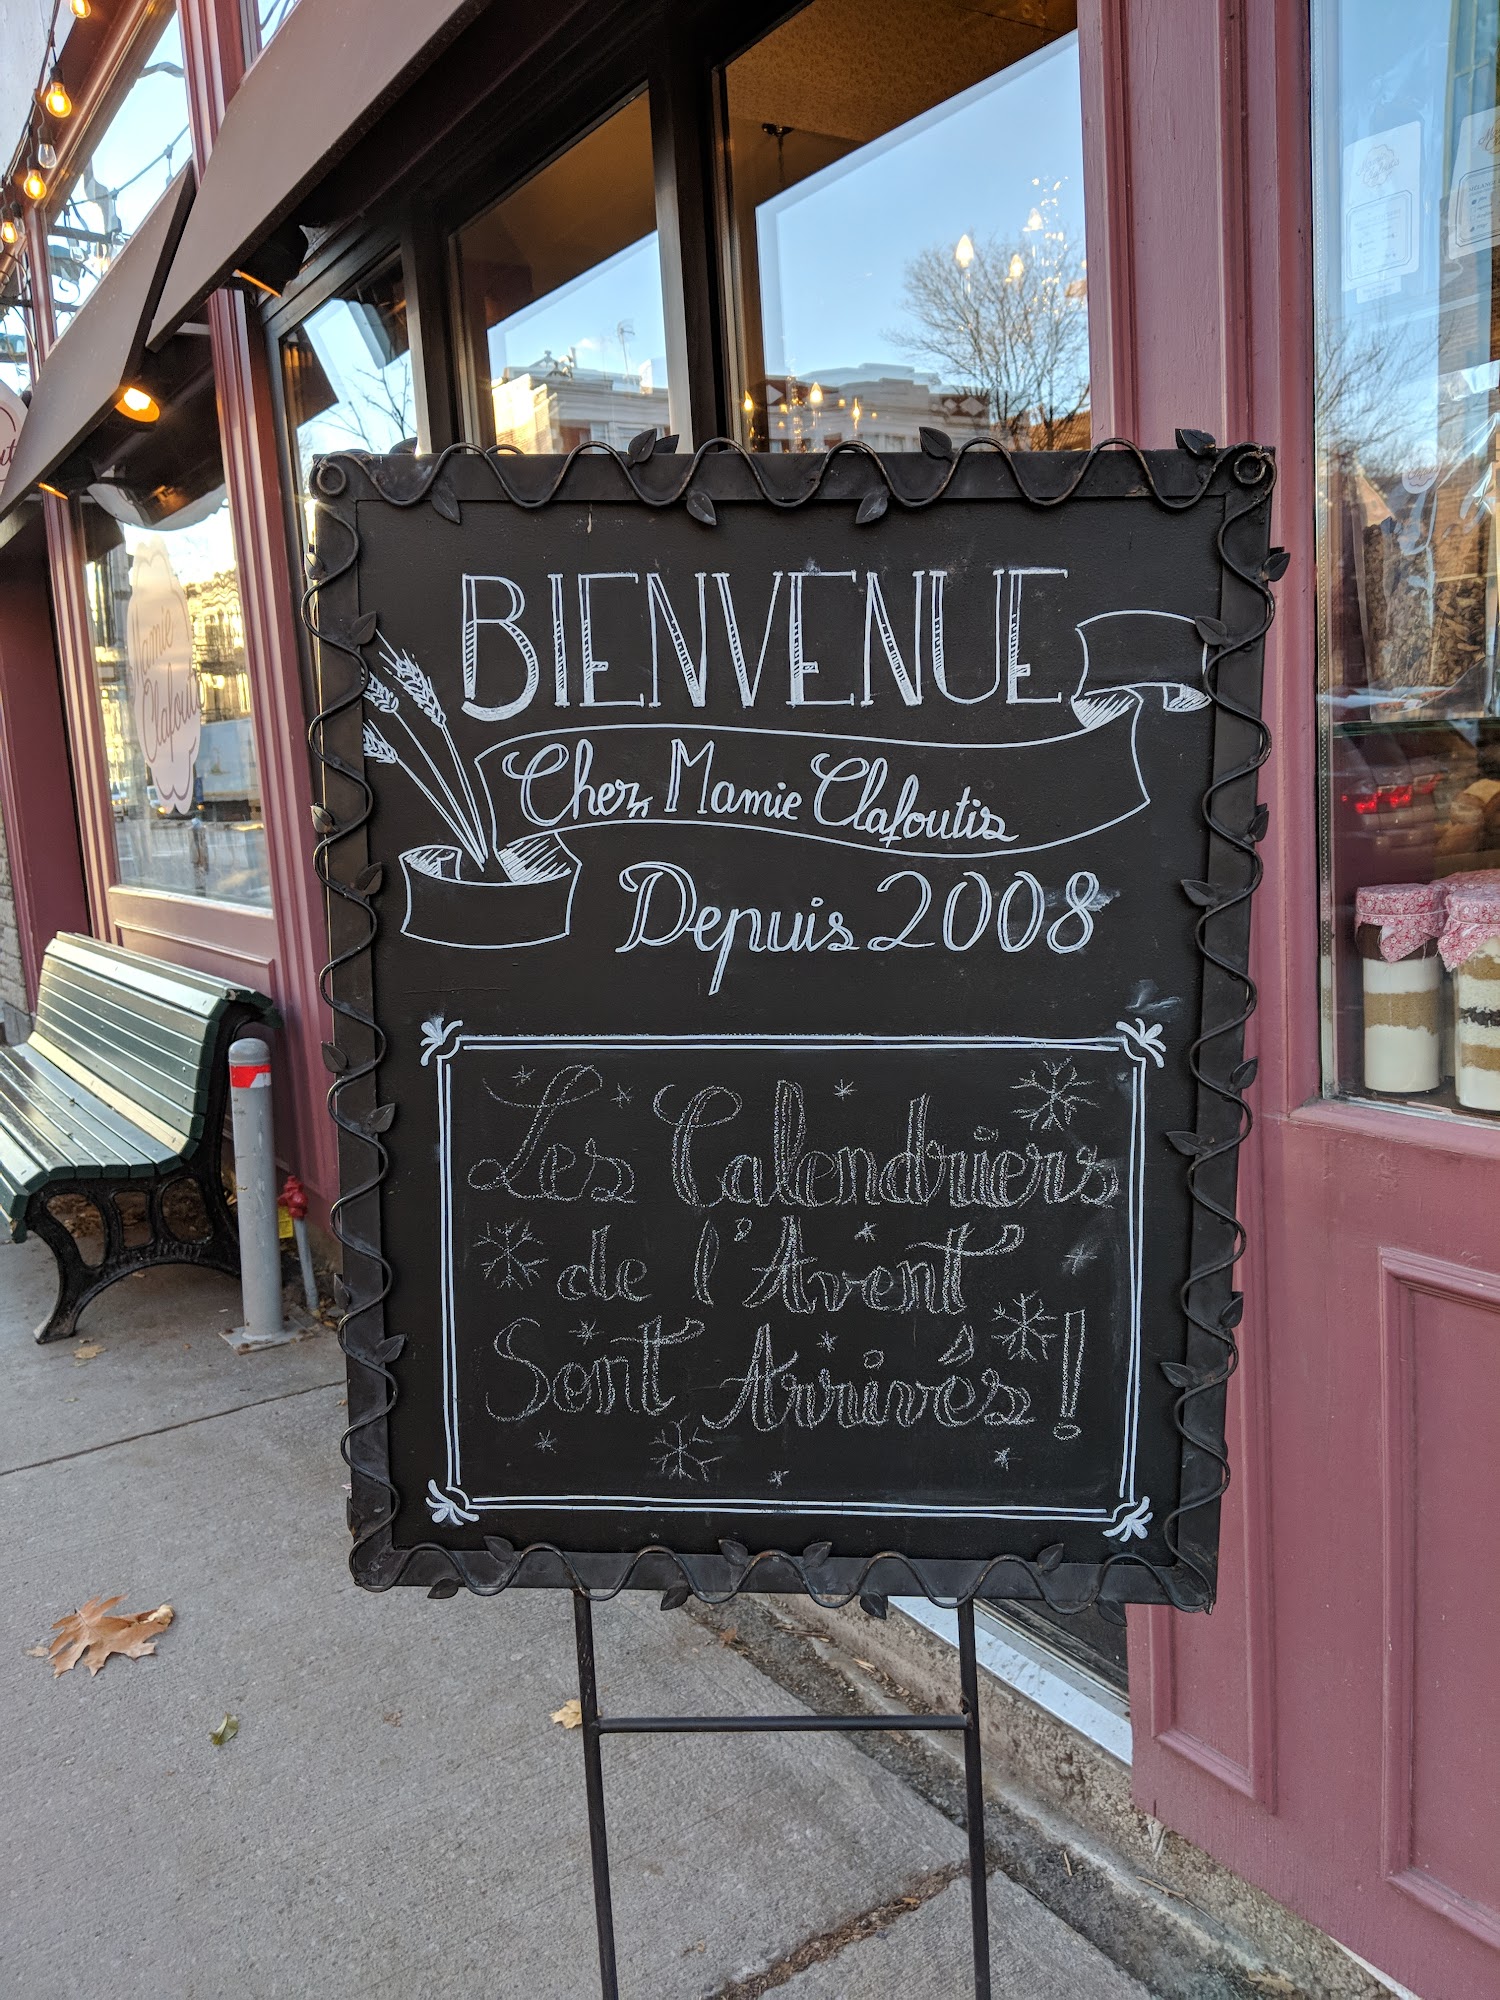 BIENVENUE
Chez Mamie Clafoutis
Depuis 2008
Les Calendriers
de l'Avent
Sont Arrivés!
Mamie
Clafoutis